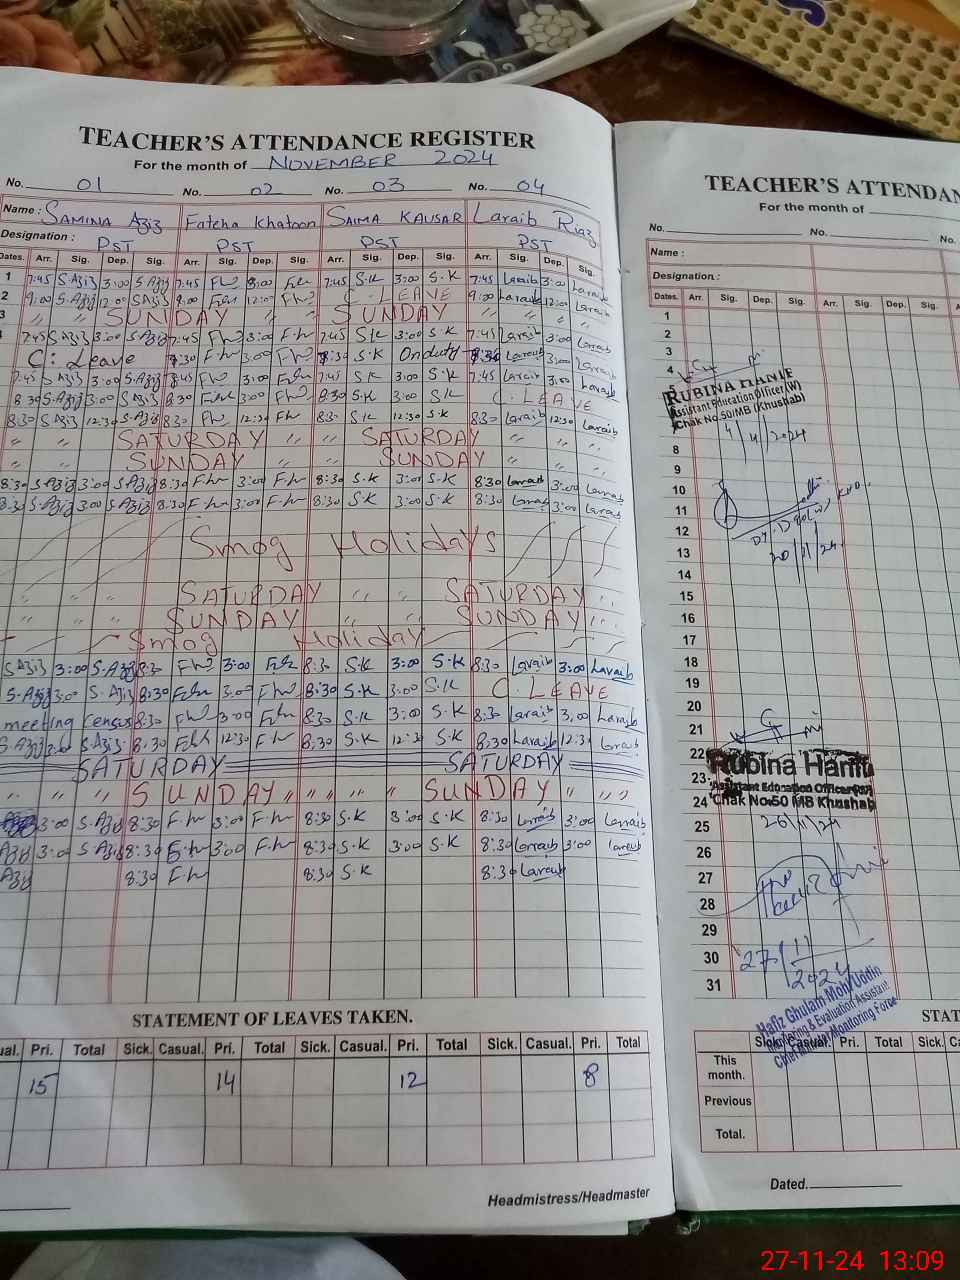 TEACHER'S ATTENDANCE REGISTER
For the month of NOVEMBER 2024
No. 01 No. 02 No. 03 No. 04
Name : SAMINA Aziz Fateha Khatoon SAIMA KAUSAR Laraib Riaz
Designation : PST PST PST PST
Dates. Arr. Sig. Dep. Sig. Arr. Sig. Dep. Sig. Arr. Sig. Dep. Sig. Arr. Sig. Dep. Sig.
1 7:45 S.Aziz 3:00 S.Aziz 7:45 3:00 7:45 S.K 3:00 S.K 7:45 Laraib 3:00 Laraib
2 9:00 S.Aziz 12:00 S.Aziz 9:00 12:00 C.LEAVE 9:00 Laraib 12:00 Laraib
3 " " SUNDAY " " SUNDAY " " "
7:45 S.Aziz 3:00 S.Aziz 7:45 3:00 F.h 7:45 S.K 3:00 S.K 7:45 Laraib 3:00 Laraib
C: Leave 8:30 F.h 3:00 8:30 S.K Onduty 8:30 Laraib 3:00 Laraib
7:45 S.Aziz 3:00 S.Aziz 3:00 7:45 S.K 3:00 S.K 7:45 Laraib 3:00 Laraib
8:30 S.Aziz 3:00 S.Aziz 8:30 3:00 8:30 S.K 3:00 S.K C.LEAVE
8:30 S.Aziz 12:30 S.Aziz 8:30 12:30 8:30 S.K 12:30 S.K 8:30 Laraib 12:30 Laraib
" " SATURDAY " " SATURDAY " " "
" " SUNDAY " " SUNDAY " " "
8:30 S.Aziz 3:00 S.Aziz 8:30 F.h 3:00 F.h 8:30 S.K 3:00 S.K 8:30 Laraib 3:00 Laraib
8:30 S.Aziz 3:00 S.Aziz 8:30 F.h 3:00 F.h 8:30 S.K 3:00 S.K 8:30 Laraib 3:00 Laraib
Smog Holidays
" " SATURDAY " " SATURDAY " "
" " SUNDAY " " SUNDAY " "
Smog Holiday
S.Aziz 3:00 S.Aziz 8:30 3:00 8:30 S.K 3:00 S.K 8:30 Laraib 3:00 Laraib
S.Aziz 3:00 S.Aziz 8:30 3:00 8:30 S.K 3:00 S.K C.LEAVE
meeting census 8:30 3:00 8:30 S.K 3:00 S.K 8:30 Laraib 3:00 Laraib
S.Aziz S.Aziz 8:30 12:30 F.h 8:30 S.K 12:30 S.K 8:30 Laraib 12:30 Laraib
SATURDAY SATURDAY
" " " SUNDAY " " " " SUNDAY " " "
3:00 S.Aziz 8:30 F.h 3:00 F.h 8:30 S.K 3:00 S.K 8:30 Laraib 3:00 Laraib
Aziz 3:00 S.Aziz 8:30 F.h 3:00 F.h 8:30 S.K 3:00 S.K 8:30 Laraib 3:00 Laraib
Aziz 8:30 F.h 8:30 S.K 8:30 Laraib
STATEMENT OF LEAVES TAKEN.
ual. Pri. Total Sick. Casual. Pri. Total Sick. Casual. Pri. Total Sick. Casual. Pri. Total
15 14 12 8
Headmistress/Headmaster
TEACHER'S ATTENDAN
For the month of
No. No. No.
Name :
Designation :
Dates. Arr. Sig. Dep. Sig. Arr. Sig. Dep. Sig. A
1
2
3
4
5
RUBINA HANIF
Assistant Education Officer(W)
Chak No.50/MB (Khushab)
8
9
10
11
12
20/11/24
13
14
15
16
17
18
19
20
21
22
Rubina Hanif
23
Assistant Education Officer
24
Chak No.50 MB Khushab
26/11/24
25
26
27
28
29
30
27/11/2024
31
Hafiz Ghulam Mohi Uddin
Monitoring & Evaluation Assistant
Chief Minister Monitoring Force
STAT
Sick. Casual. Pri. Total Sick. C
This month.
Previous
Total.
Dated.
27-11-24 13:09